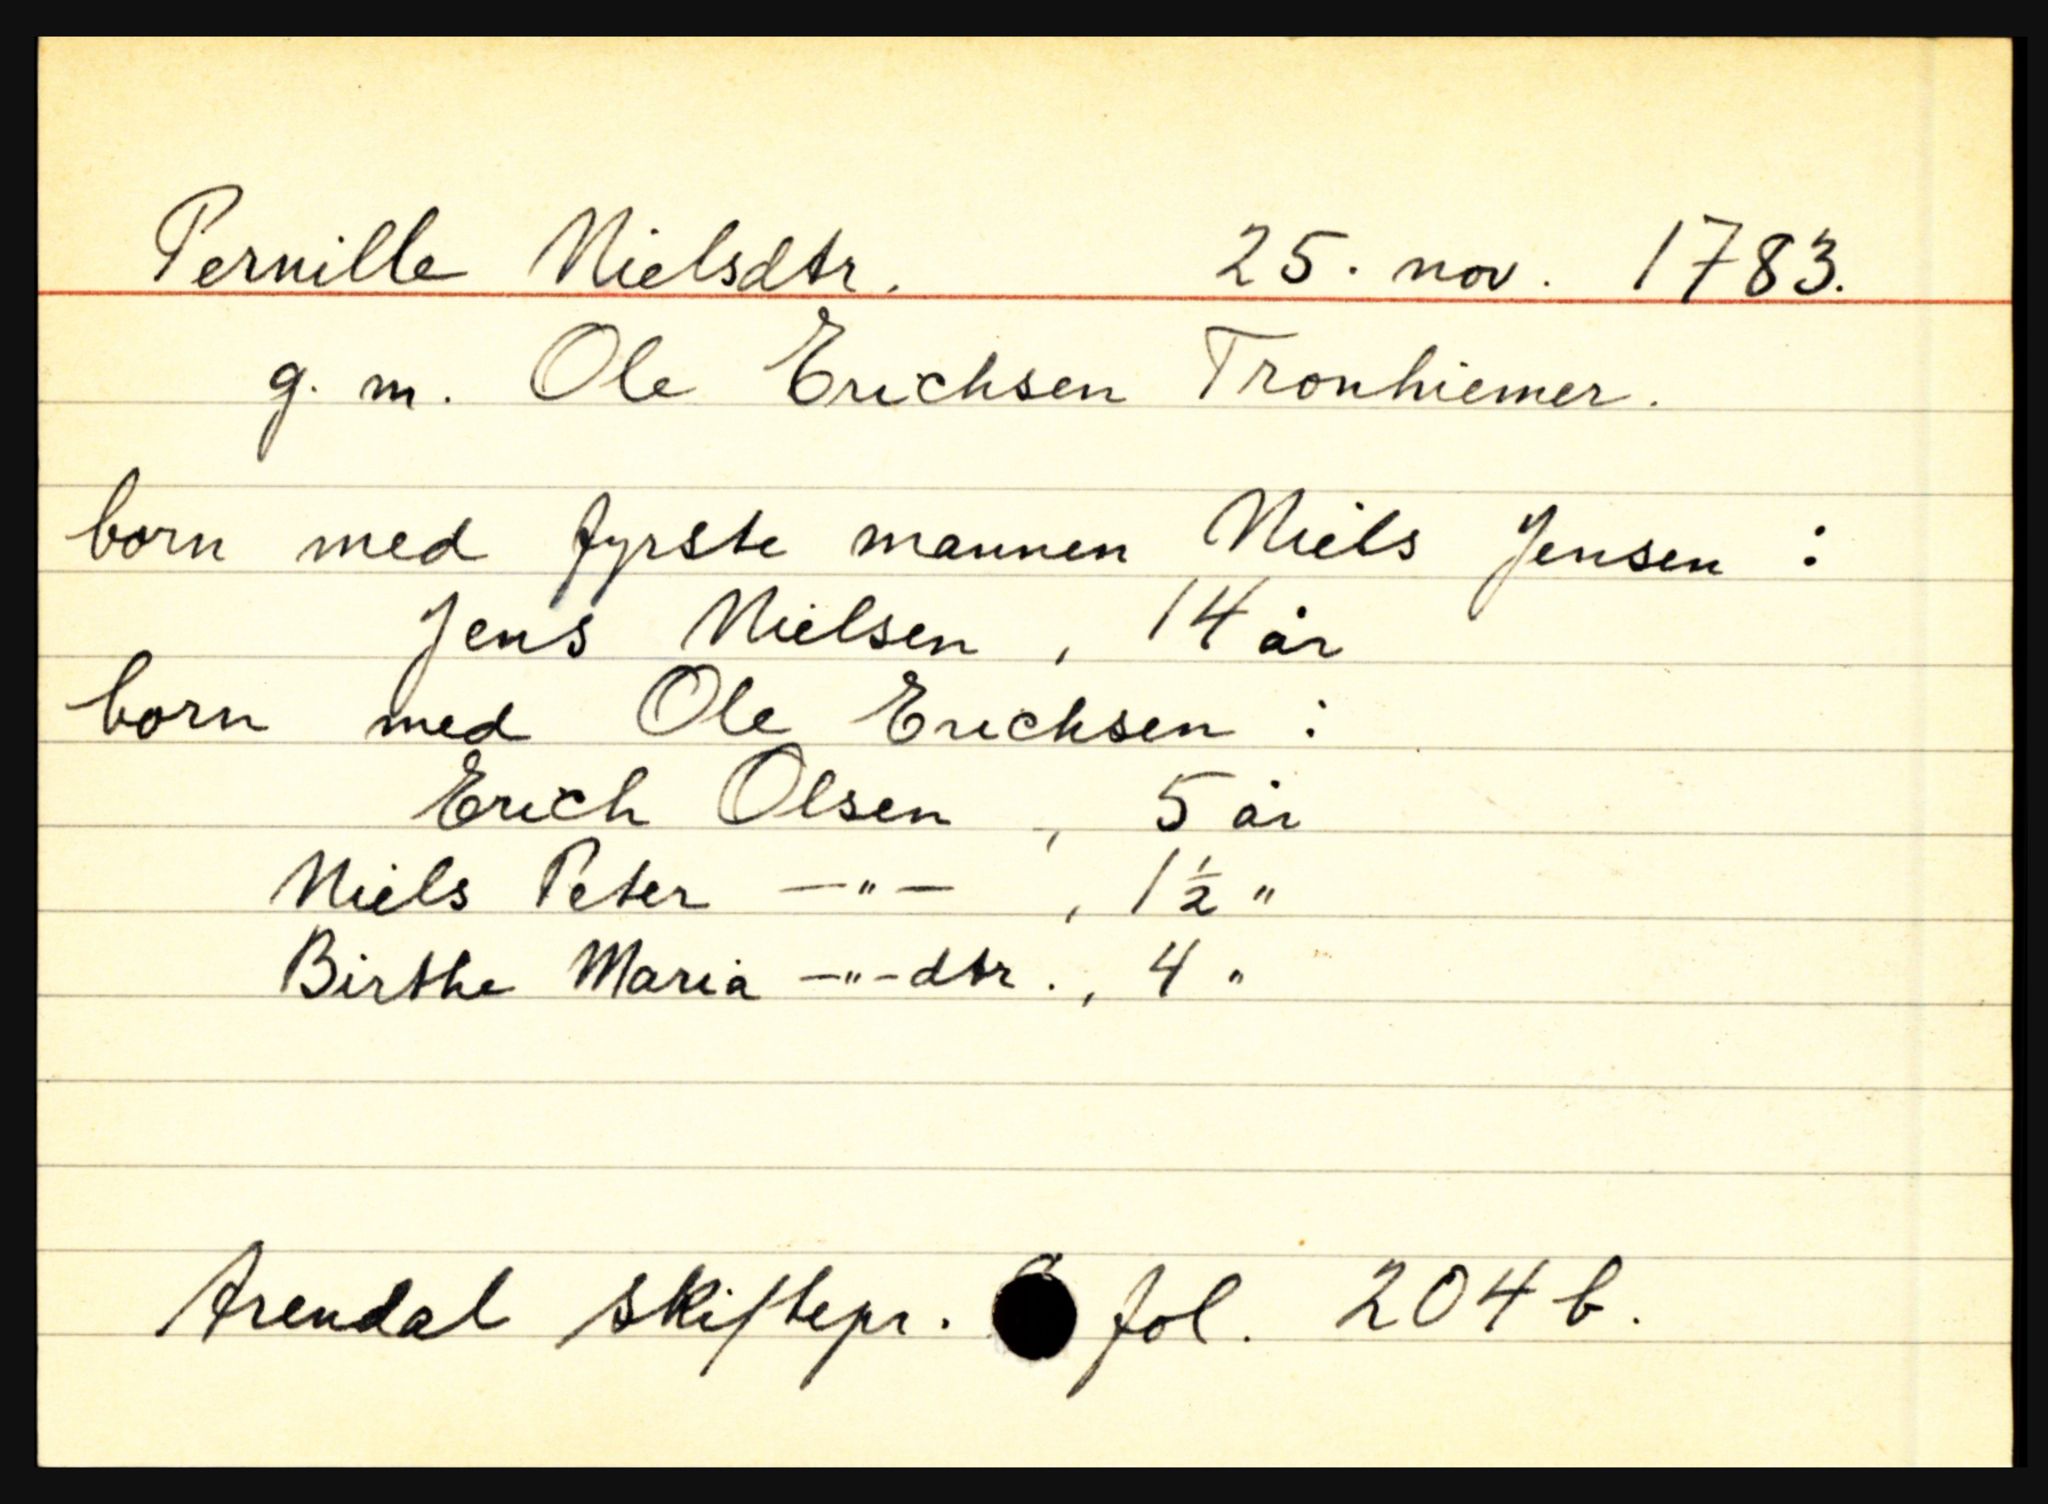 Pernille Nielsdtr. 25. nov. 1783.
g. m. Ole Erichsen Tronhiemer.
born med fyrste mannen Niels Jensen :
Jens Nielsen , 14 år
born med Ole Erichsen :
Erich Olsen , 5 år
Niels Peter —"— , 1½ "
Birthe Maria —"—dtr. , 4 "
Arendal skiftepr. fol. 204 b.